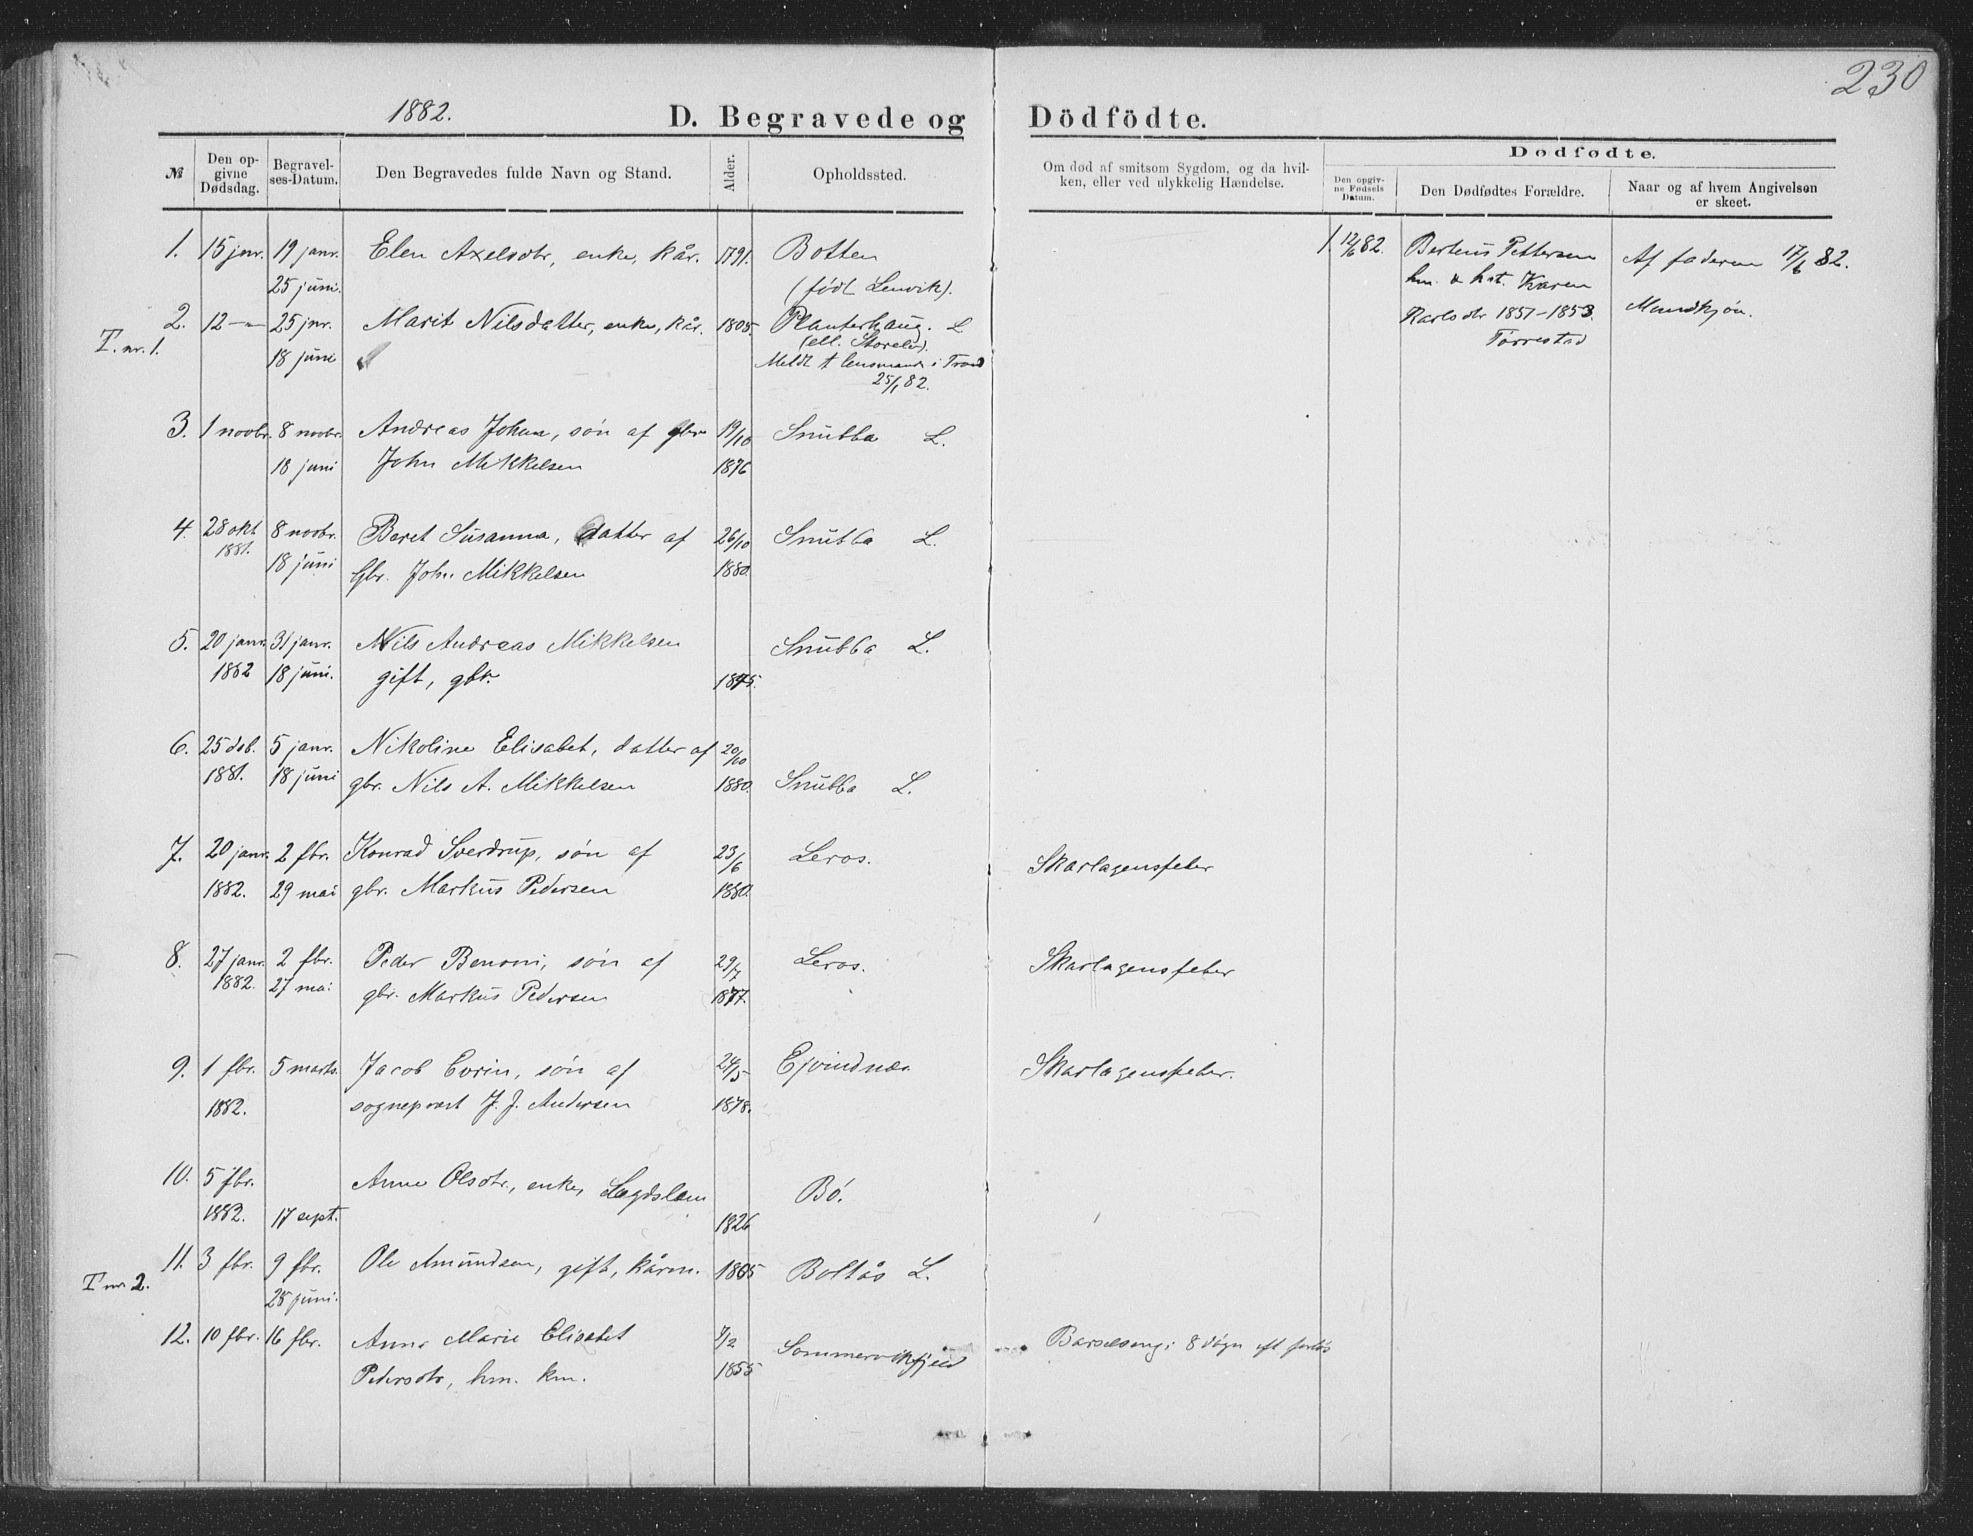 230
1882.
D. Begravede og Dödfödte.
№
Den opgivne Dødsdag.
Begravelses-Datum.
Den Begravedes fulde Navn og Stand.
Alder.
Opholdssted.
Om død af smitsom Sygdom, og da hvilken, eller ved ulykkelig Hændelse.
Dødfødte.
Den opgivne Fødsels Datum.
Den Dødfødtes Forældre.
Naar og af hvem Angivelsen er skeet.
1. 15 jnr. 19 janr. Elen Axelsdtr, enke, kår. 1791. Botten
25 juni. (født Lenvik).
2. 12 — 25 jnr. Marit Nilsdatter, enke, kår. 1805. Planterhaug. L
T. nr. 1. 18 juni (ell. Storelv).
Meldt t. lensmand i Trand
25/1 82.
3. 1 novbr. 8 novbr. Andreas Johan, søn af gbr 19/10 Snubba L.
18 juni John Mikkelsen 1876
4. 28 okt 8 novbr. Beret Susanna, datter af 26/10 Snubba L.
1881. 18 juni Gbr. John Mikkelsen 1880.
5. 20 janr. 31 janr. Nils Andreas Mikkelsen Snubba L.
1882 18 juni. gift, gbr. 1845.
6. 25 dcb. 5 janr. Nikoline Elisabet, datter af 20/10
1881. 18 juni gbr. Nils A. Mikkelsen 1880. Snubba L.
7. 20 janr. 2 fbr. Konrad Sverdrup, søn af 23/6 Leros. Skarlagensfeber
1882. 29 mai gbr. Markus Pedersen 1880.
8. 27 janr. 2 fbr. Peder Benoni, søn af 29/7 Leros. Skarlagensfeber
1882. 27 mai gbr. Markus Pedersen 1877.
9. 1 fbr. 5 marts. Jacob Corin, søn af 24/5 Ejvindnæs Skarlagensfeber.
1882. sogneprest J. J. Andersen 1878.
10. 5 fbr. Anne Olsdtr., enke, Lægdslem Bø.
1882. 17 sept. 1826
11. 3 fbr. 9 fbr. Ole Amundsen, gift, kårm. 1805 Boltås L.
T nr 2. 25 juni.
12. 10 fbr. 16 fbr. Anne Marie Elisabet 7/2 Sommervikfjeld Barselseng; 8 døgn eft forløs
Petersdtr, hm. km. 1855
1. 12/6 82. Berteus Pettersen Af faderen 17/6 82.
hm. & hst. Karen
Karlsdtr 1851-1853 Mandkjøn.
Tørrestad